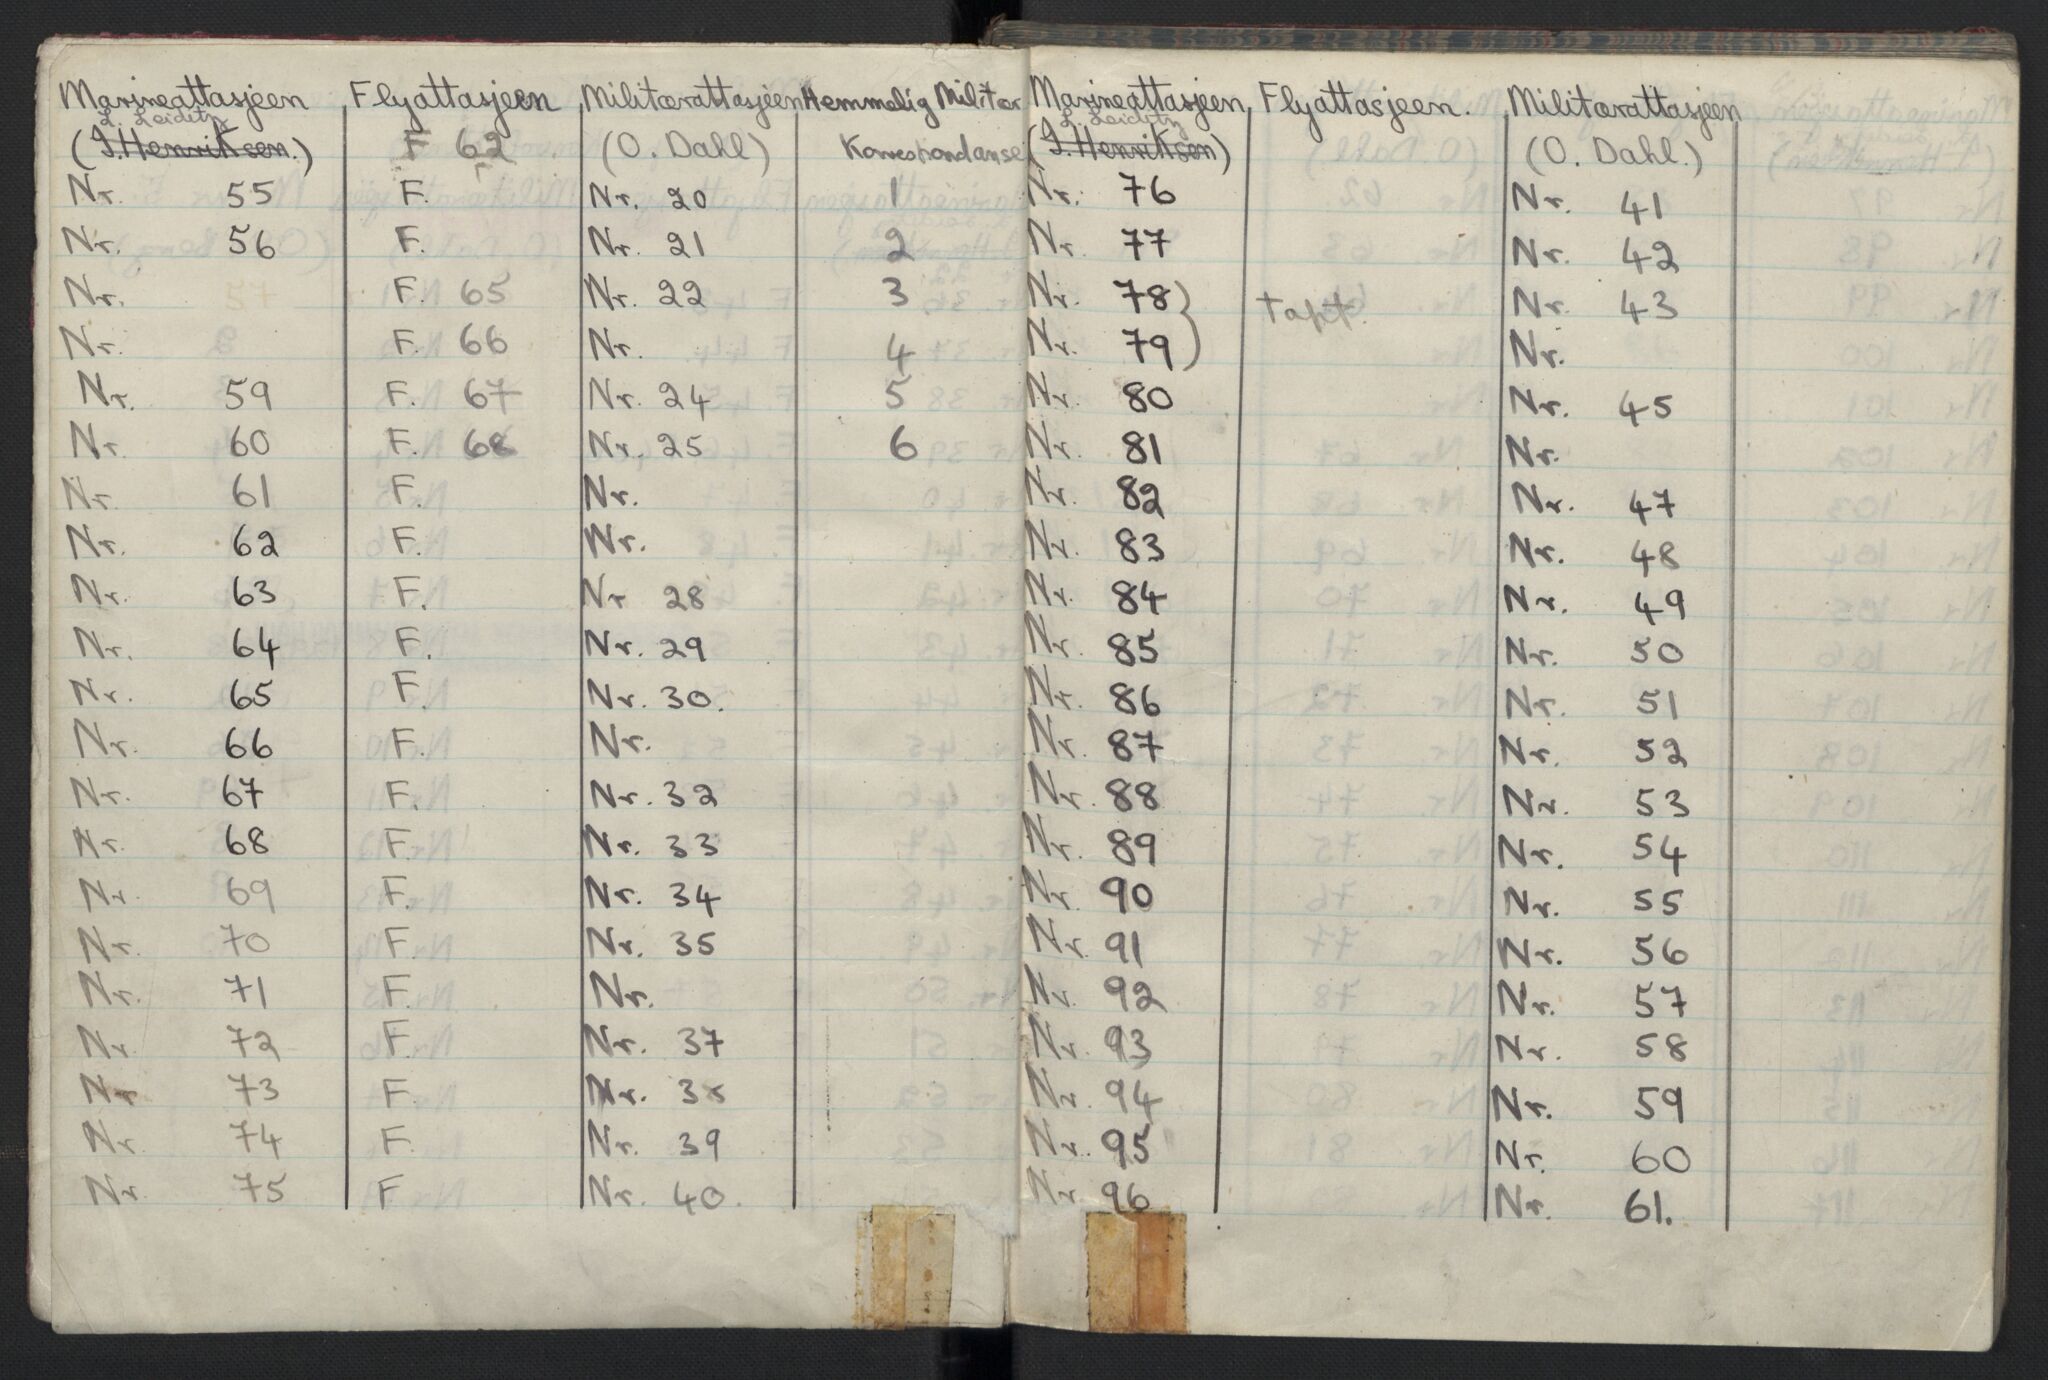 Marineattasjeen Flyattasjeen Militærattasjeen Hemmelig Militær
(J. Henriksen.) F 62 (O. Dahl) Korrespondanse
Nr. 55 F. Nr. 20 1
Nr. 56 F. Nr. 21 2
Nr. 57 F. 65 Nr. 22 3
Nr. F. 66 Nr. 4
Nr. 59 F. 67 Nr. 24 5
Nr. 60 F. 68 Nr. 25 6
Nr. 61 F. Nr.
Nr. 62 F. Nr.
Nr. 63 F. Nr 28
Nr. 64 F. Nr. 29
Nr. 65 F. Nr. 30.
Nr. 66 F. Nr.
Nr. 67 F. Nr. 32
Nr. 68 F. Nr. 33
Nr. 69 F. Nr. 34
Nr. 70 F. Nr. 35
Nr. 71 F. Nr.
Nr. 72 F. Nr. 37
Nr 73 F. Nr. 38
Nr 74 F. Nr. 39
Nr. 75 F Nr. 40.
Marineattasjeen Flyattasjeen. Militærattasjeen
(J. Henriksen) (O. Dahl.)
Nr. 76 Nr. 41
Nr. 77 Nr. 42
Nr. 78 } Tapt. Nr. 43
Nr. 79 } Nr.
Nr. 80 Nr. 45
Nr. 81 Nr.
Nr. 82 Nr. 47
Nr. 83 Nr. 48
Nr. 84 Nr. 49
Nr. 85 Nr. 50
Nr. 86 Nr. 51
Nr. 87 Nr. 52
Nr. 88 Nr. 53
Nr. 89 Nr. 54
Nr. 90 Nr. 55
Nr. 91 Nr. 56
Nr. 92 Nr. 57
Nr. 93 Nr. 58
Nr. 94 Nr. 59
Nr. 95 Nr. 60
Nr. 96 Nr. 61.